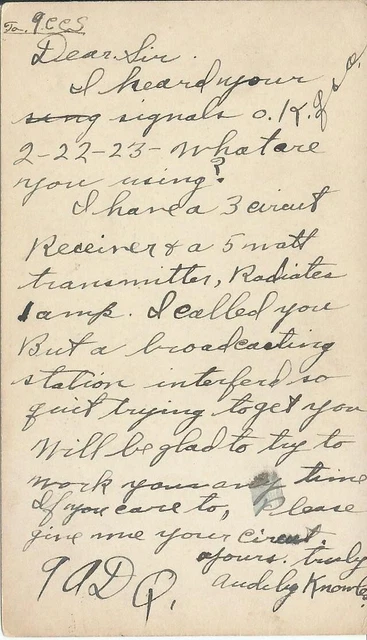 To. 9CCS
Dear Sir.
I heard your
sung signals O.K. f s o.
2-22-23- What are
you using?
I have a 3 circut
Receiver & a 5 watt
transmitter, Radiates
1 amp. I called you
But a broadcasting
station interferd so
quit trying to get you
Will be glad to try to
work you any time
If you care to, Please
give me your circut.
yours. truly
9ADQ. Knowles